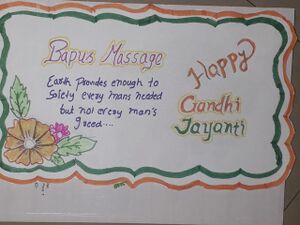 Bapus Massage
Earth Provides enough to
Satiety every mans needed
but not every man's
greed....
Happy
Gandhi
Jayanti